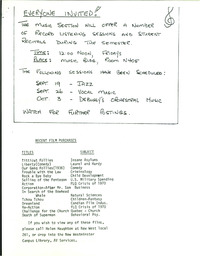 EVERYONE INVITED!
THE MUSIC SECTION WILL OFFER A NUMBER
OF RECORD LISTENING SESSIONS AND STUDENT
RECITALS DURING THE SEMESTER.
TIMES: 12:00 NOON, FRIDAYS
PLACE: MUSIC BLDG, ROOM
THE FOLLOWING SESSIONS HAVE BEEN SCHEDULED:
SEPT 19 - JAZZ
SEPT 26 - VOCAL MUSIC
OCT 3 - DEBUSSY'S ORCHESTRAL MUSIC
WATCH FOR FURTHER POSTINGS.
RECENT FILM PURCHASES
TITLES SUBJECT
Titicut Follies Insane Asylums
Liberty(Comedy) Laurel and Hardy
Our Gang Follies(1938) Comedy
Trouble with the Law Criminology
Rock a Bye Baby Child Development
Selling of the Pentagon U.S. Military Spending
Action FLQ Crisis of 1970
Corporation-After Mr. Sam Business
In Search of the Bowhead
Whale Natural Sciences
Tchou Tchou Children-Fantasy
Dreamland Canadian Film Indus.
Reaction FLQ Crisis of 1970
Challenge for the Church Quebec - Church
Death of Superman Behavioral Psy.
If you wish to view any of these films,
please call Helen Houghton at New West local
261, or drop into the New Westminster
Campus Library, AV Services.